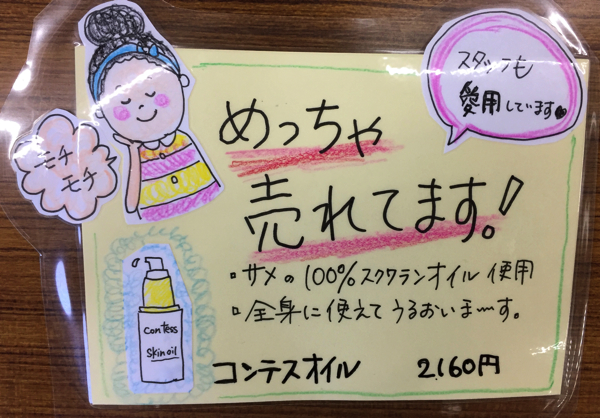 スタッフも
愛用しています
モチ
モチ
めっちゃ
売れてます!
・サメの100%スクワランオイル使用
・全身に使えてうるおいまーす。
contess
skin oil
コンテスオイル 2,160円